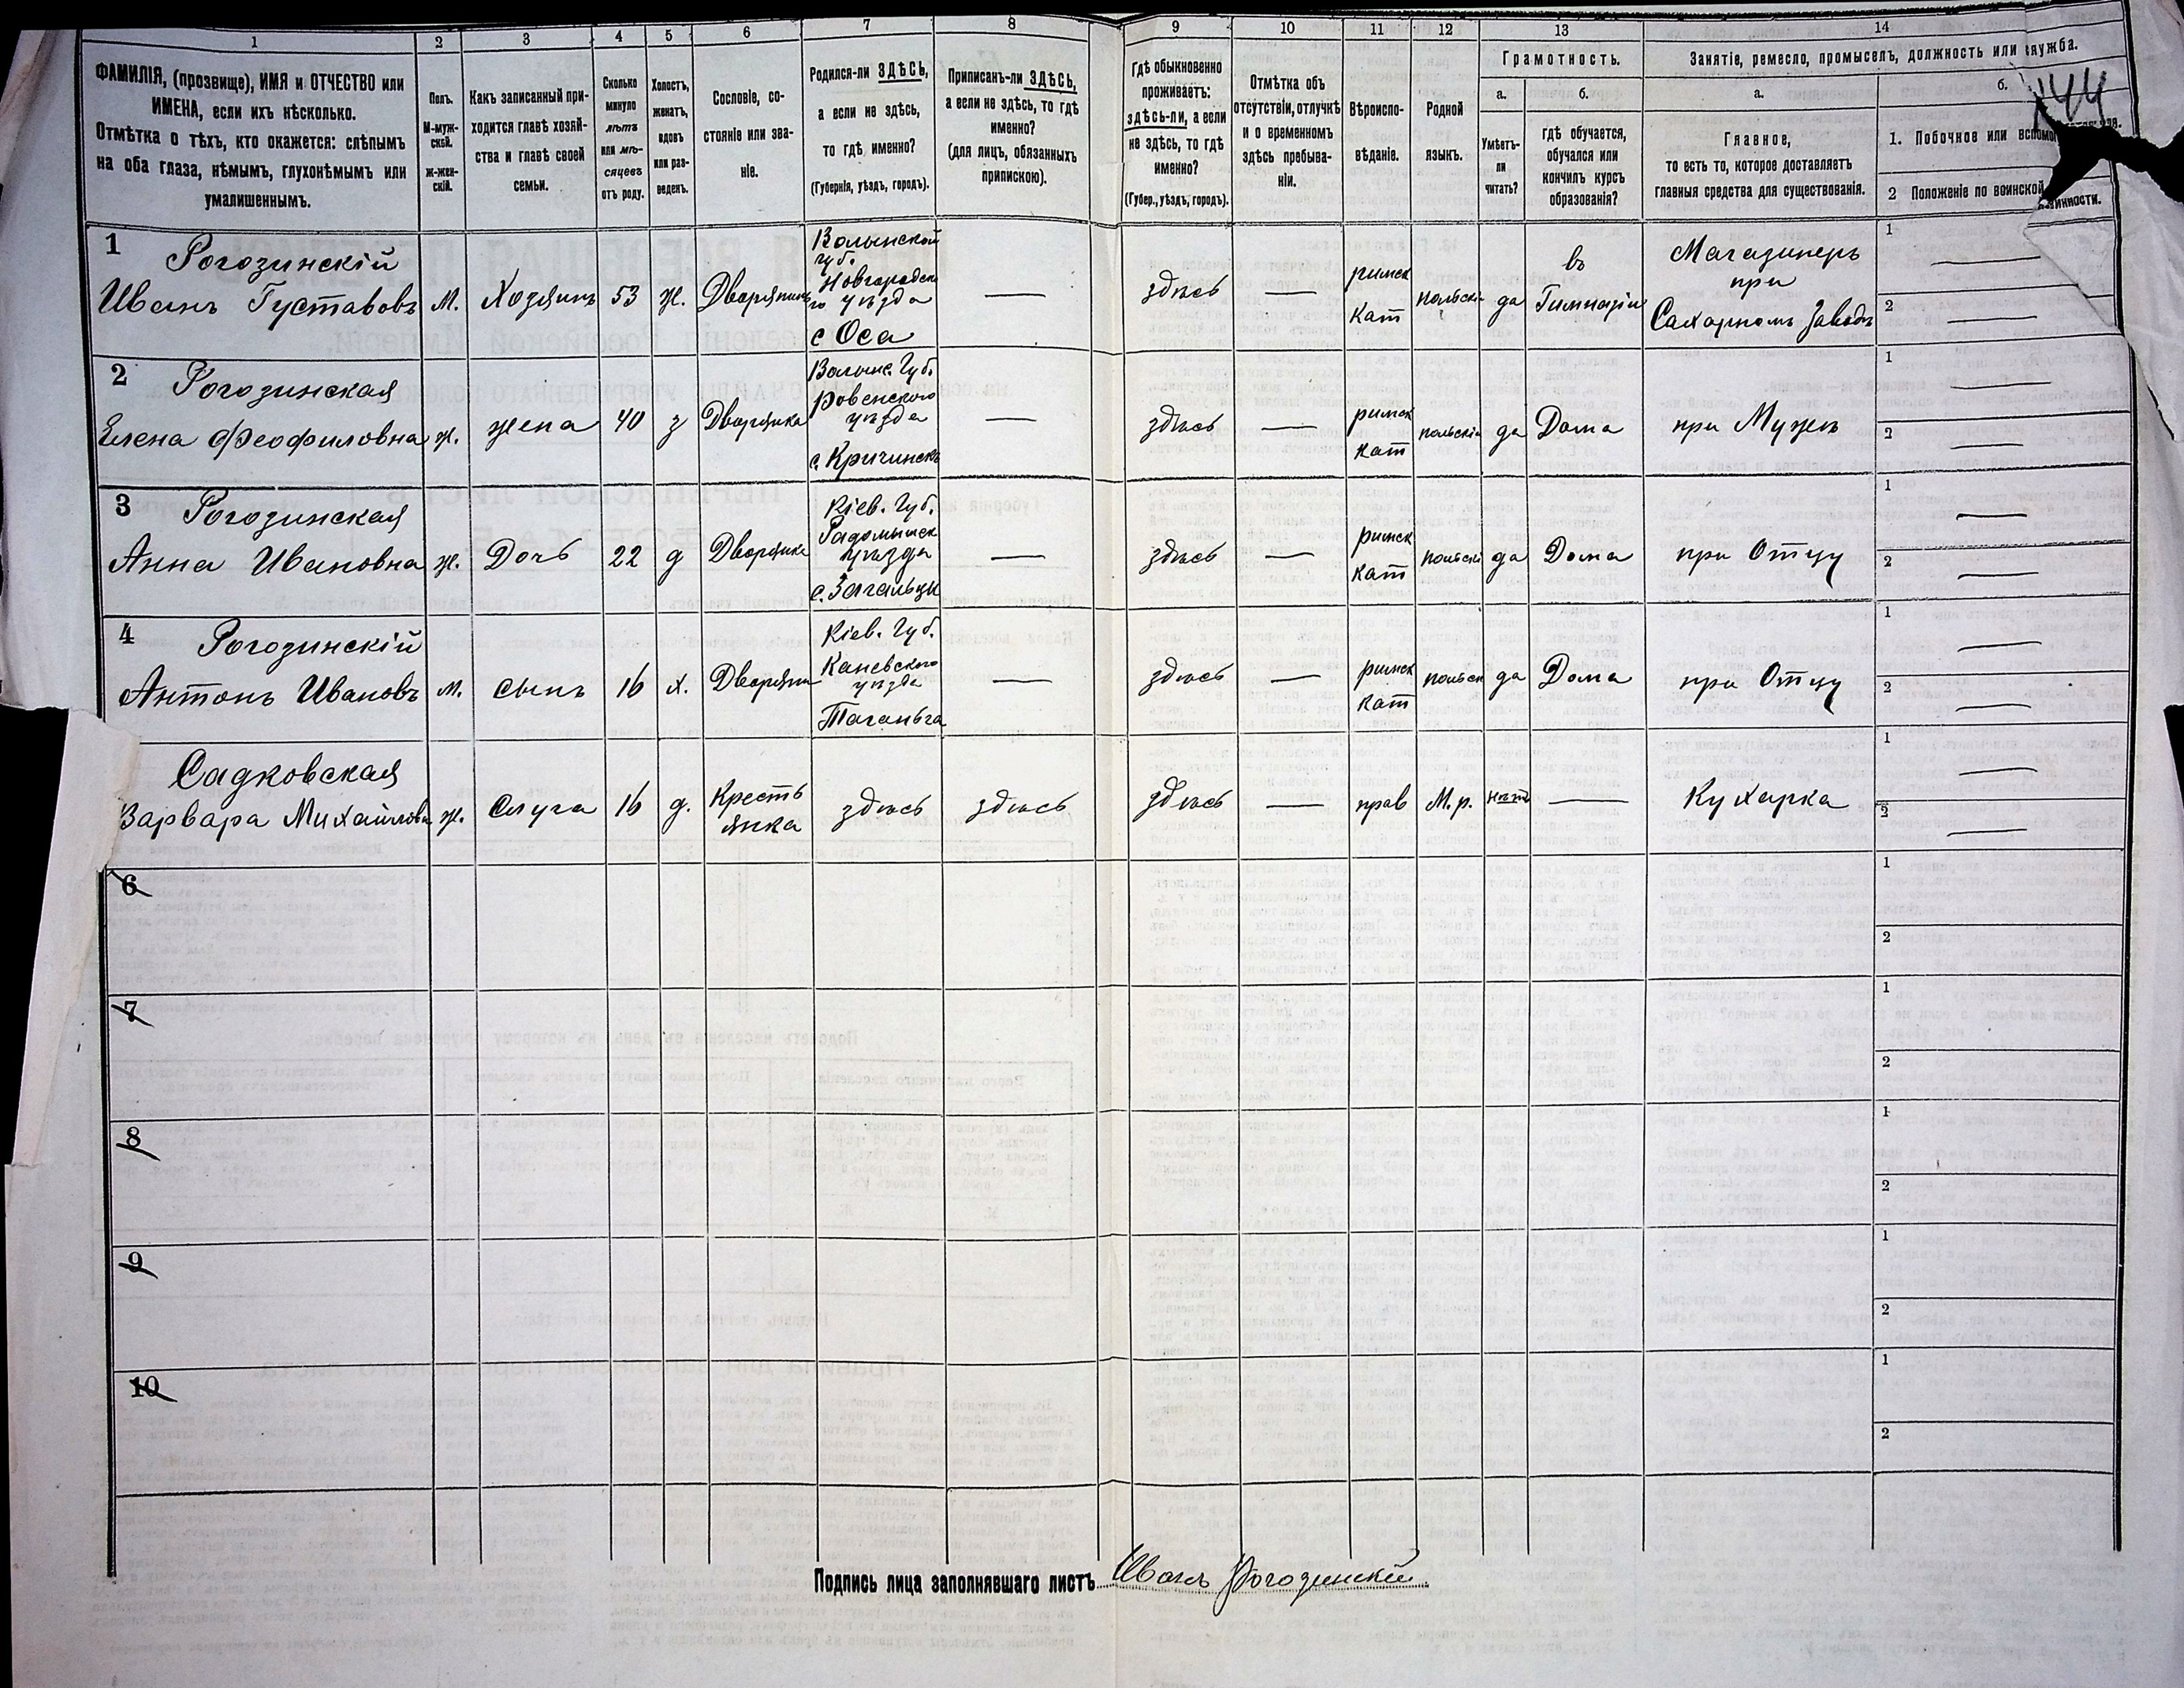 1 2 3 4 5 6 7 8 9 10 11 12 13 14
ФАМИЛІЯ, (прозвище), ИМЯ и ОТЧЕСТВО или
ИМЕНА, если ихъ нѣсколько.
Отмѣтка о тѣхъ, кто окажется: слѣпымъ
на оба глаза, нѣмымъ, глухонѣмымъ или
умалишеннымъ.
Полъ.
М-муж-
ской.
ж-жен-
скій.
Какъ записанный при-
ходится главѣ хозяй-
ства и главѣ своей
семьи.
Сколько
минуло
лѣтъ
или мѣ-
сяцевъ
отъ роду.
Холостъ,
женатъ,
вдовъ
или раз-
веденъ.
Сословіе, со-
стояніе или зва-
ніе.
Родился-ли ЗДѢСЬ,
а если не здѣсь,
то гдѣ именно?
(Губернія, уѣздъ, городъ).
Приписанъ-ли ЗДѢСЬ,
а если не здѣсь, то гдѣ
именно?
(для лицъ, обязанныхъ
припискою).
Гдѣ обыкновенно
проживаетъ:
здѣсь-ли, а если
не здѣсь, то гдѣ
именно?
(Губер., уѣздъ, городъ).
Отмѣтка объ
отсутствіи, отлучкѣ
и о временномъ
здѣсь пребыва-
ніи.
Вѣроиспо-
вѣданіе.
Родной
языкъ.
Грамотность.
а.
Умѣетъ-
ли
читать?
б.
гдѣ обучается,
обучался или
кончилъ курсъ
образованія?
Занятіе, ремесло, промыселъ, должность или служба.
а.
Главное,
то есть то, которое доставляетъ
главныя средства для существованія.
б.
144
1. Побочное или
2 Положеніе по воинской повинности.
1
Рогозинскій
Иванъ Густавовъ
М.
Хозяинъ
53
ж.
Дворянинъ
Волынской
губ.
Новгородска
го уѣзда
с Оса
—
здѣсь
—
римск
кат
польскі
да
въ
Гимназіи
Магазинеръ
при
Сахарномъ Заводѣ
1 —
2 —
2
Рогозинская
Елена Феофиловна
ж.
жена
40
з
Дворянка
Волынс. Губ.
Ровенского
уѣзда
с. Кричинскъ
—
здѣсь
—
римск
кат
польскі
да
Дома
при Мужѣ
1 —
2 —
3
Рогозинская
Анна Ивановна
ж.
Дочь
22
д
Дворянка
Кіев. Губ.
Радомышск
уѣзда
с. Загальцы
—
здѣсь
—
римск
кат
польскі
да
Дома
при Отцу
1 —
2 —
4
Рогозинскій
Антонъ Ивановъ
М.
сынъ
16
х.
Дворянин
Кіев. Губ.
Каневского
уѣзда
Таганьча
—
здѣсь
—
римск
кат
польск
да
Дома
при Отцу
1 —
2 —
Садковская
Варвара Михайловн
ж.
Слуга
16
д.
Кресть
янка
здѣсь
здѣсь
здѣсь
—
прав
М. р.
нѣтъ
—
Кухарка
1 —
2 —
6
1
2
7
1
2
8
1
2
9
1
2
10
1
2
Подпись лица заполнявшаго листъ Иванъ Рогозинскій